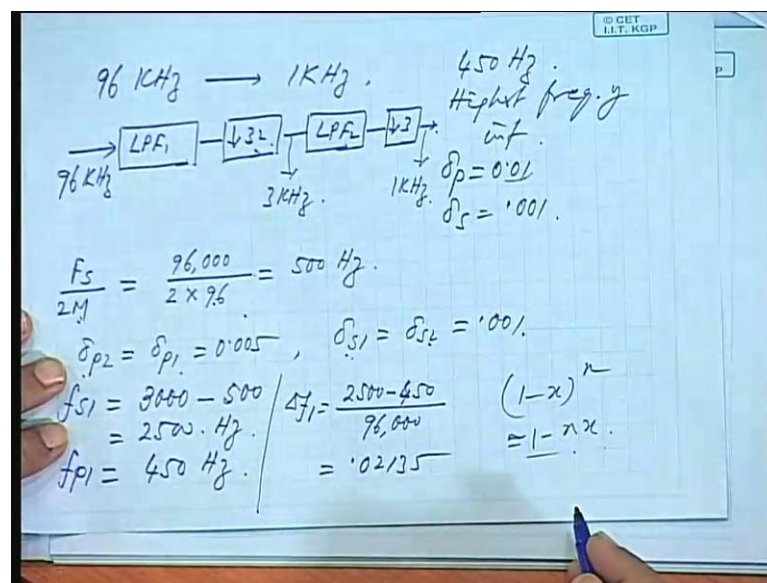 © CET
I.I.T. KGP
P
96 KHz → 1KHz.
450 Hz.
Highest freq. y
inf.
δp = 0.01
δs = .001.
→ LPF1 ↓32 LPF2 ↓3 →
96KHz 3KHz. 1KHz.
Fs/2M = 96,000/(2 × 96) = 500 Hz.
δp2 = δp1 = 0.005, δs1 = δs2 = .001.
fs1 = 3000 - 500
= 2500. Hz.
fp1 = 450 Hz.
Δf1 = (2500-450)/96,000
= .02135
(1-x)^n
= 1-nx.